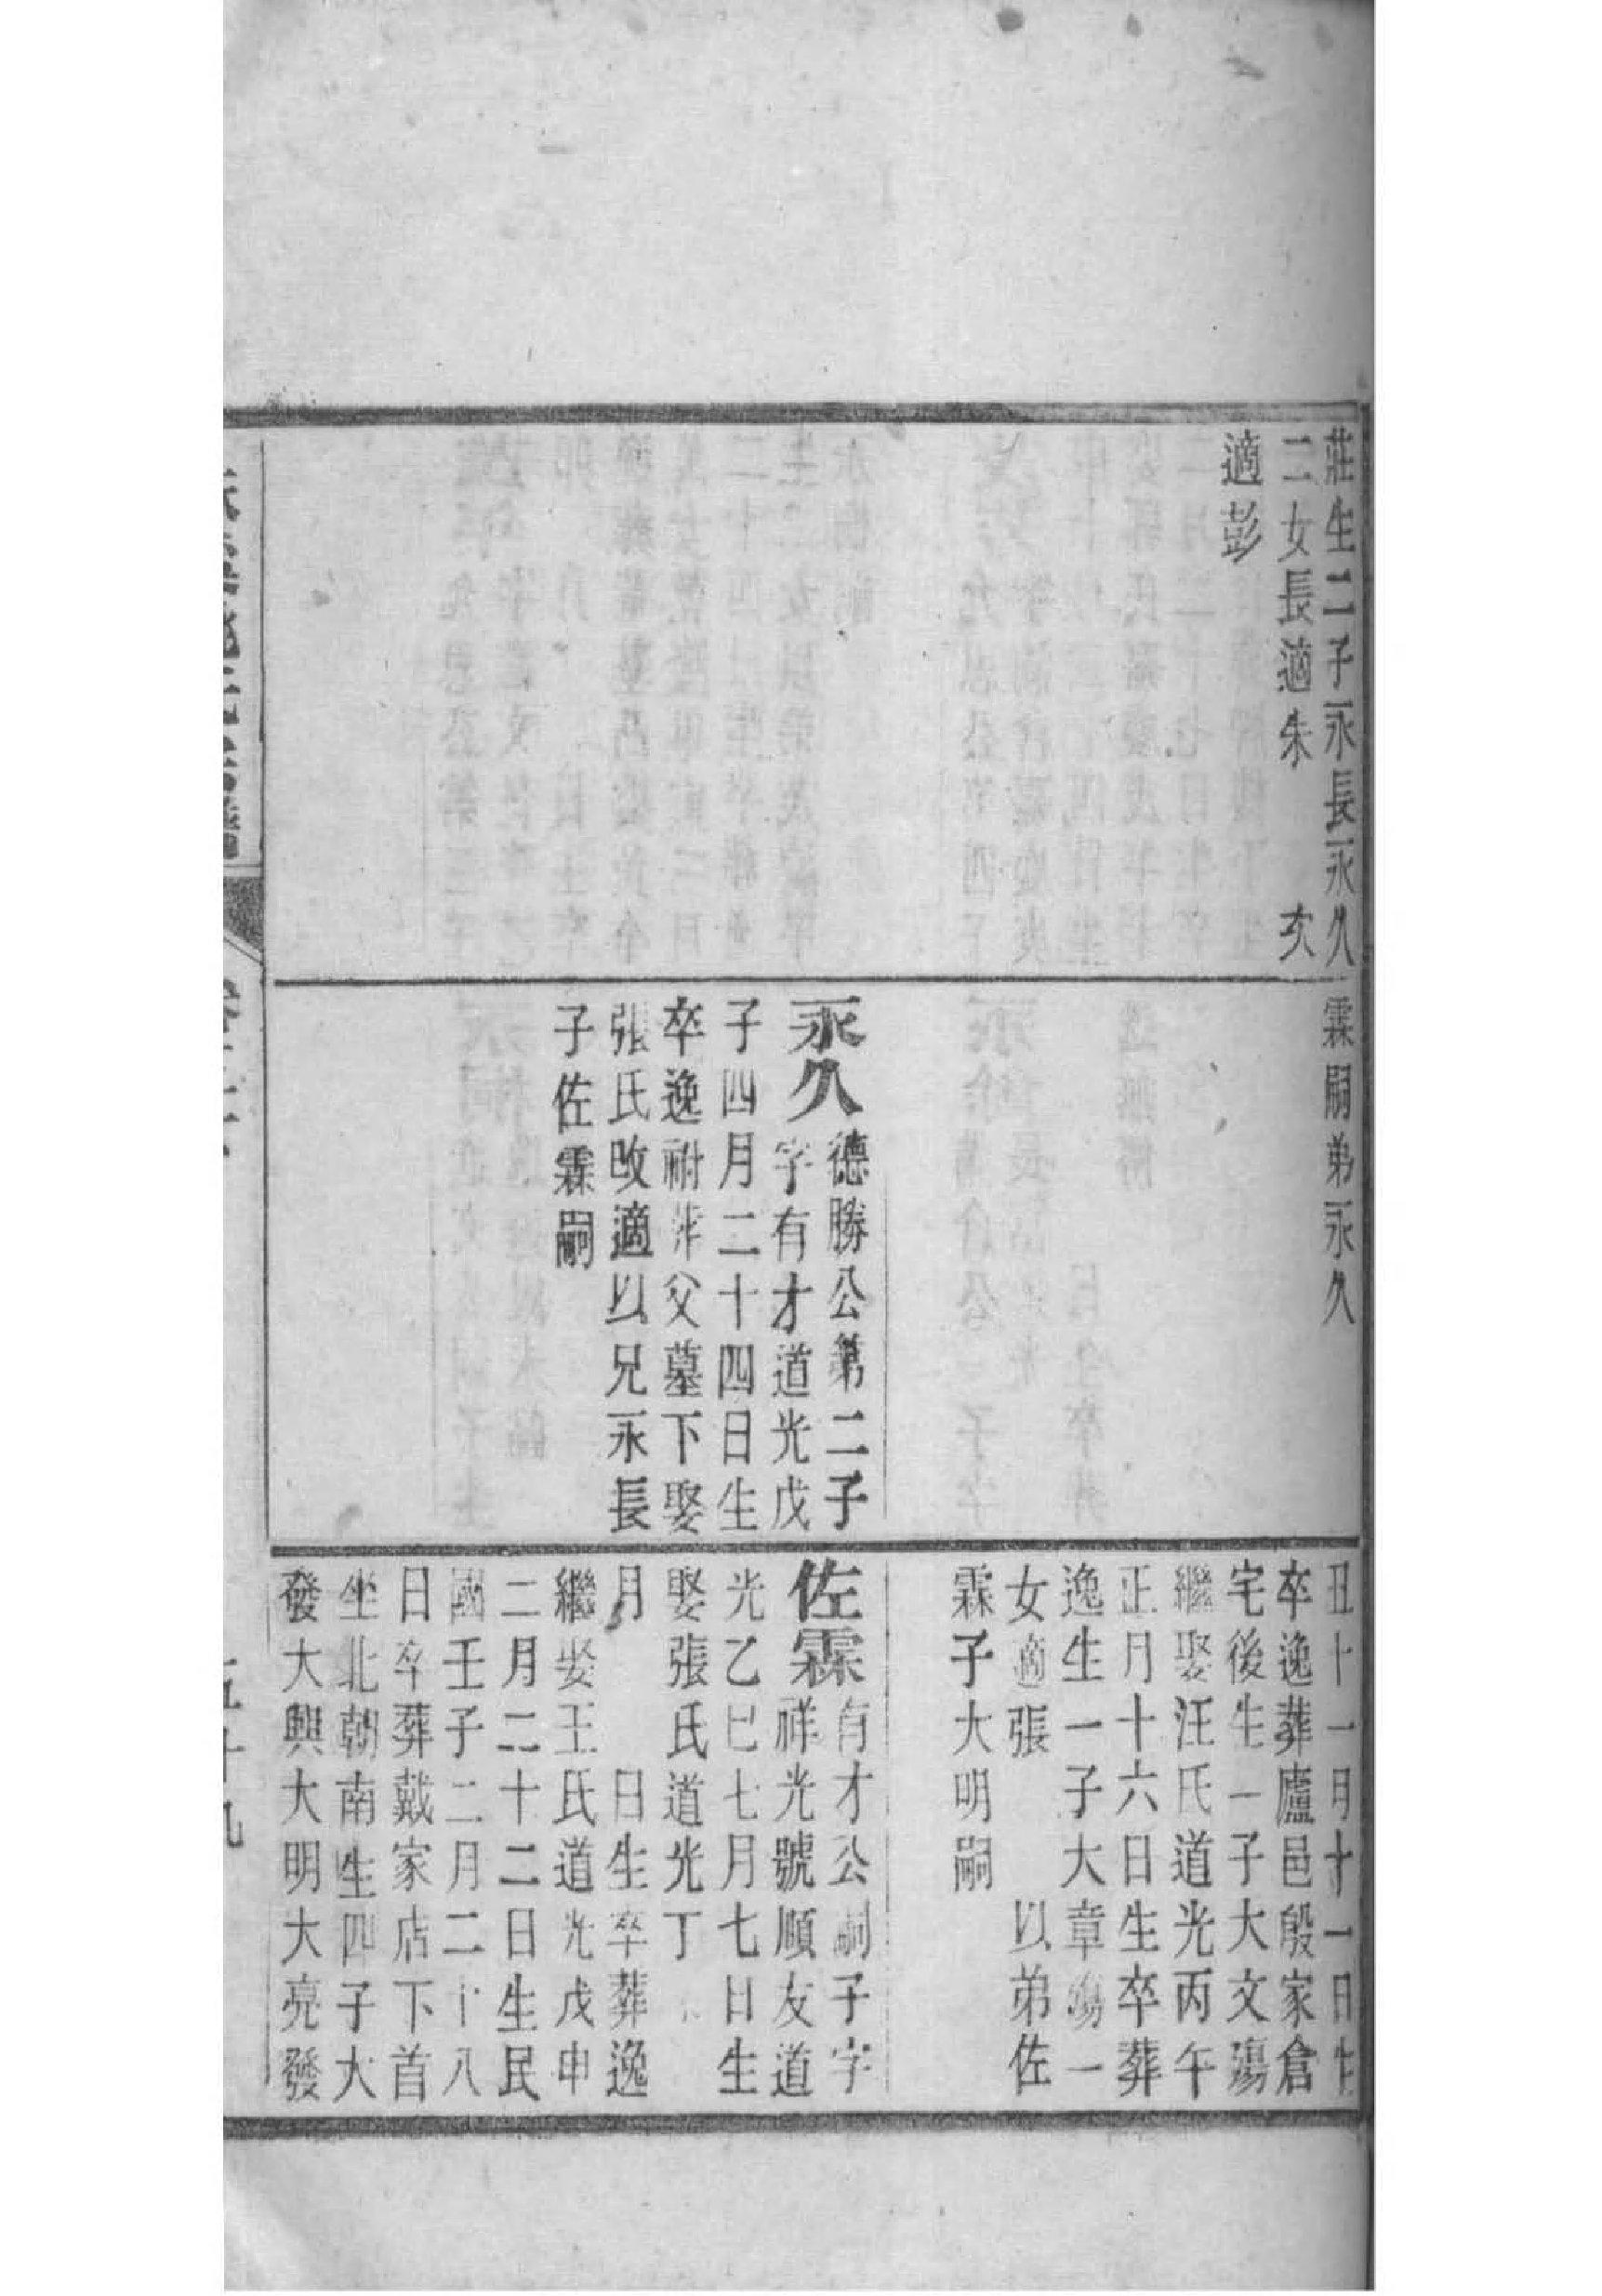 莊生二子永長永久
二女長適朱　次
適彭
霖嗣弟永久
永久
德勝公第二子
字有才道光戊
子四月二十四日生
卒逸祔葬父墓下娶
張氏改適以兄永長
子佐霖嗣
丑十一月十一日生
卒逸葬廬邑殷家倉
宅後生一子大文殤
繼娶汪氏道光丙午
正月十六日生卒葬
逸生一子大章殤一
女適張　以弟佐
霖子大明嗣
佐霖
有才公嗣子字
祥光號順友道
光乙巳七月七日生
娶張氏道光丁
月　日生卒葬逸
繼娶王氏道光戊申
二月二十二日生民
國壬子二月二十八
日卒葬戴家店下首
坐北朝南生四子大
發大興大明大亮發
五十九